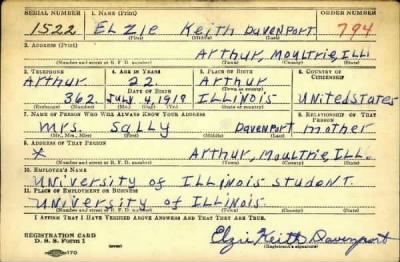 SERIAL NUMBER 1. NAME (Print) ORDER NUMBER
1522 ELZIE Keith DAVENPORT 794
(First) (Middle) (Last)
2. ADDRESS (Print)
Arthur, Moultrie, Ill
(Number and street or R. F. D. number) (Town) (County) (State)
3. TELEPHONE 4. AGE IN YEARS 5. PLACE OF BIRTH 6. COUNTRY OF CITIZENSHIP
Arthur 22 Arthur
DATE OF BIRTH (Town or county)
362 July 4, 1918 ILLINOIS United States
(Exchange) (Number) (Mo.) (Day) (Yr.) (State or country)
7. NAME OF PERSON WHO WILL ALWAYS KNOW YOUR ADDRESS 8. RELATIONSHIP OF THAT PERSON
Mrs. Sally Davenport mother
(Mr., Mrs., Miss) (First) (Middle) (Last)
9. ADDRESS OF THAT PERSON
x Arthur, Moultrie, Ill.
(Number and street or R. F. D. number) (Town) (County) (State)
10. EMPLOYER'S NAME
University of Illinois student.
11. PLACE OF EMPLOYMENT OR BUSINESS
University of Illinois.
(Number and street or R. F. D. number) (Town) (County) (State)
I AFFIRM THAT I HAVE VERIFIED ABOVE ANSWERS AND THAT THEY ARE TRUE.
REGISTRATION CARD
D. S. S. Form 1 Elzie Keith Davenport
(Registrant's signature)